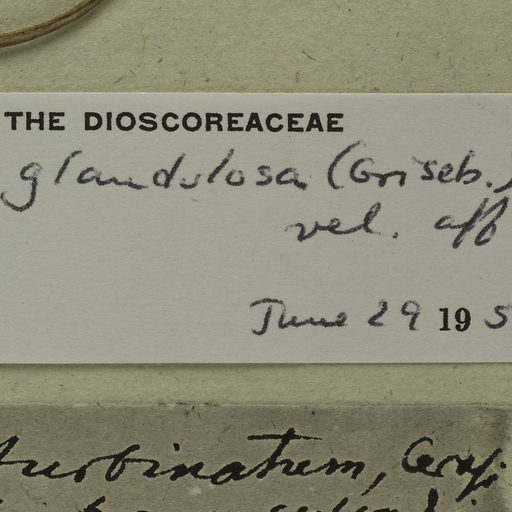 THE DIOSCOREACEAE
glandulosa (Griseb.)
vel. aff
June 29 19 5
turbinatum,